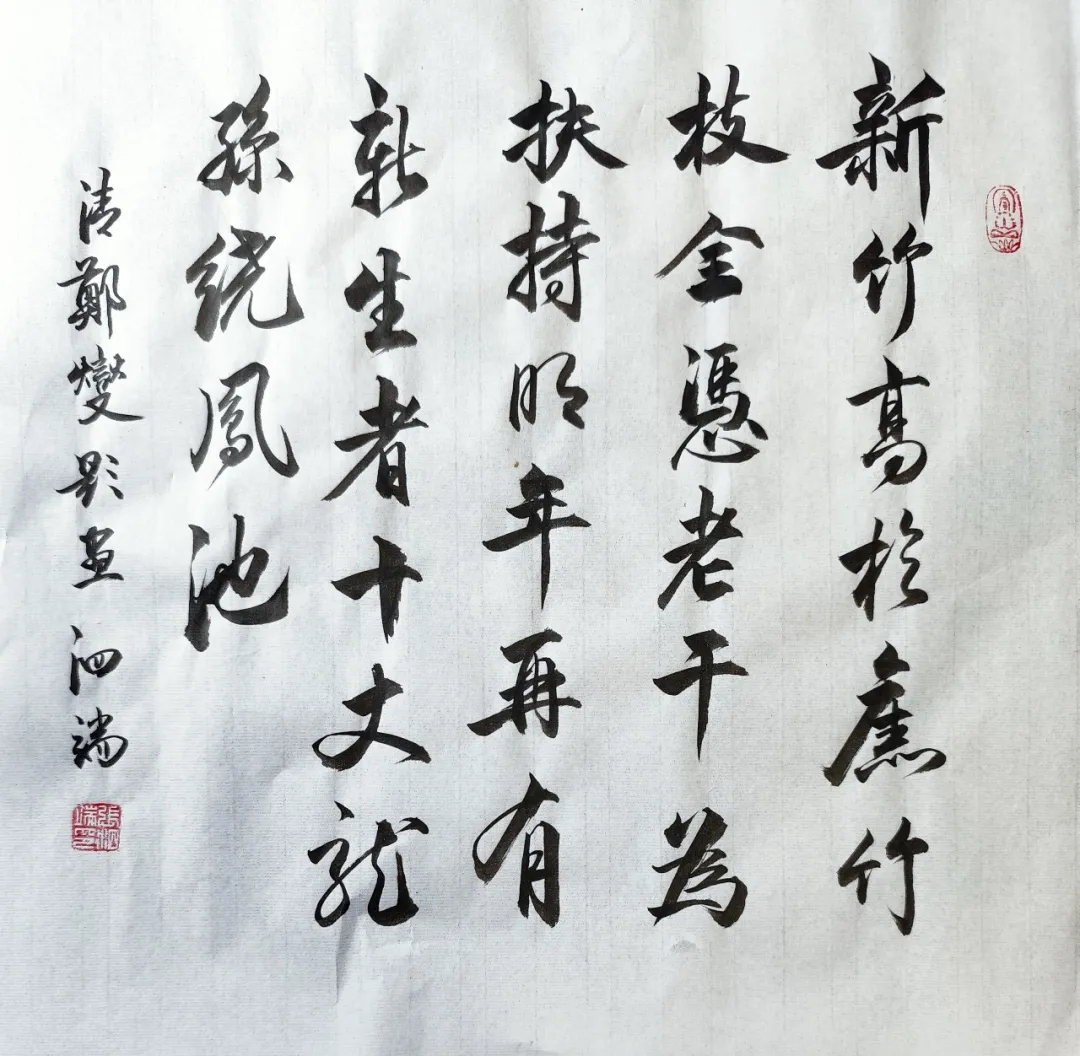 新竹高於舊竹
枝全憑老干為
扶持明年再有
新生者十丈龍
孫绕鳳池
清鄭燮題畫 泗端
張泗端印